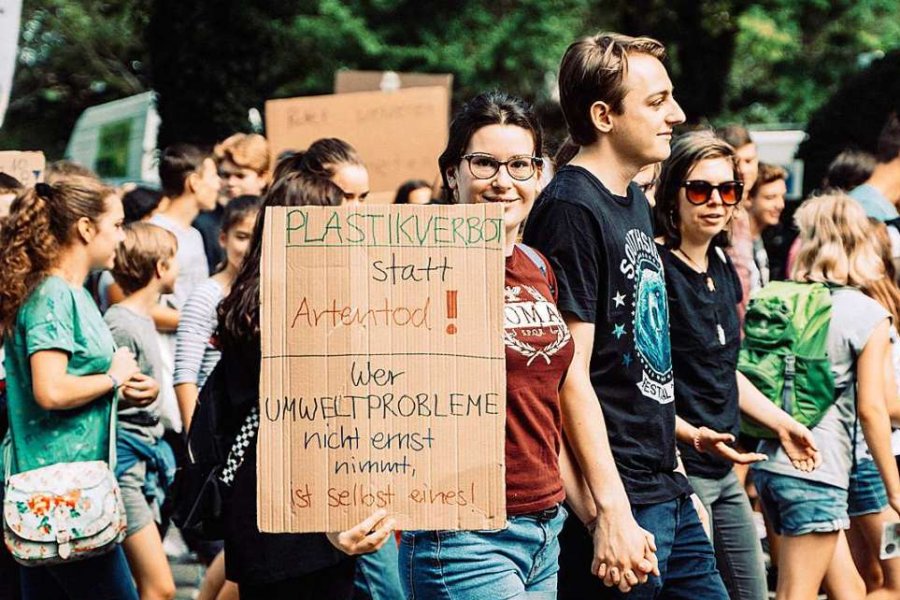 PLASTIKVERBOT
statt
Artentod!
Wer
UMWELTPROBLEME
nicht ernst
nimmt,
ist selbst eines!